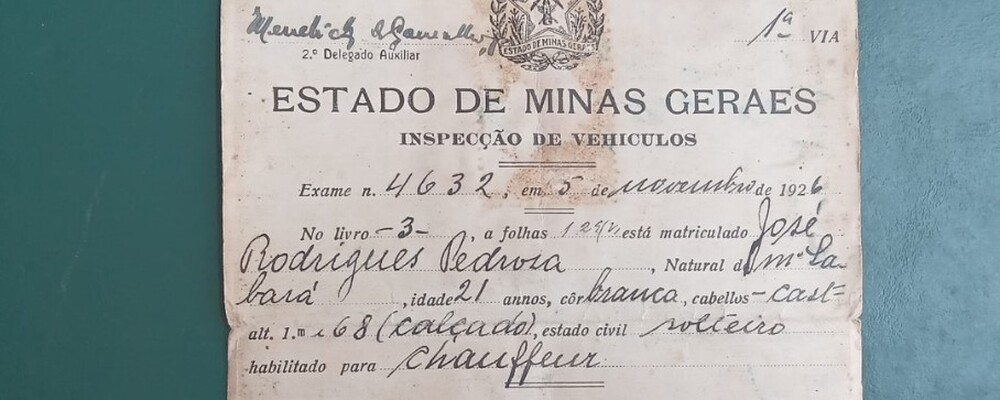 1ª VIA
2.º Delegado Auxiliar
ESTADO DE MINAS GERAES
ESTADO DE MINAS GERAES
INSPECÇÃO DE VEHICULOS
Exame n. 4632, em 5 de novembro de 1926
No livro -3-, a folhas está matriculado José
Rodrigues Pedrosa, Natural d
bará, idade 21 annos, côr branca, cabellos - cast-
alt. 1.m e 68 (calçado), estado civil solteiro
habilitado para chauffeur